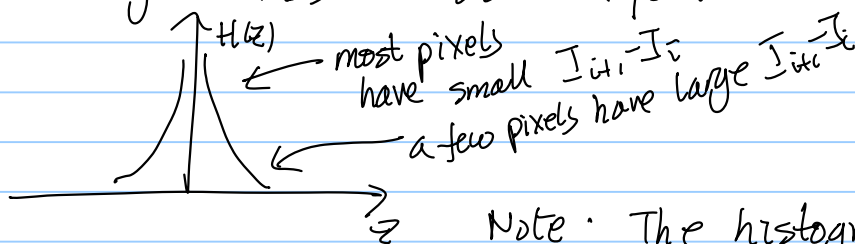 H(z)
most pixels
have small I_{i+1}-I_i
a few pixels have large I_{i+1}-I_i
z
Note. The histogr